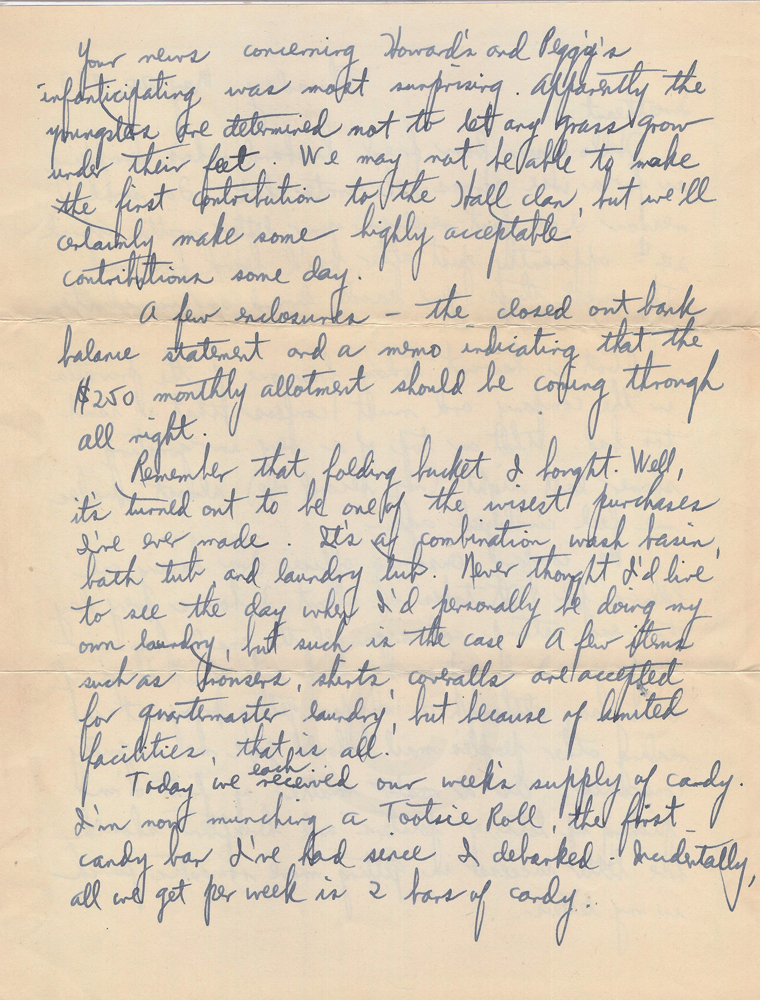 Your news concerning Howard's and Peggy's
"infanticipating was most surprising. Apparently the
youngsters are determined not to let any grass grow
under their feet. We may not be able to make
the first contribution to the Hall clan, but we'll
certainly make some highly acceptable
contributions some day.
A few enclosures - the closed out bank
balance statement and a memo indicating that the
$250 monthly allotment should be coming through
all right.
Remember that folding bucket I bought. Well,
it's turned out to be one of the wisest purchases
I've ever made. It's a combination wash basin,
bath tub and laundry tub. Never thought I'd live
to see the day when I'd personally be doing my
own laundry, but such is the case. A few items
such as trousers, shirts, coveralls are accepted
for quartermaster laundry, but because of limited
facilities, that is all.
Today we each received our week's supply of candy.
I'm now munching a Tootsie Roll, the first
candy bar I've had since I debarked. Incidentally,
all we get per week is 2 bars of candy.